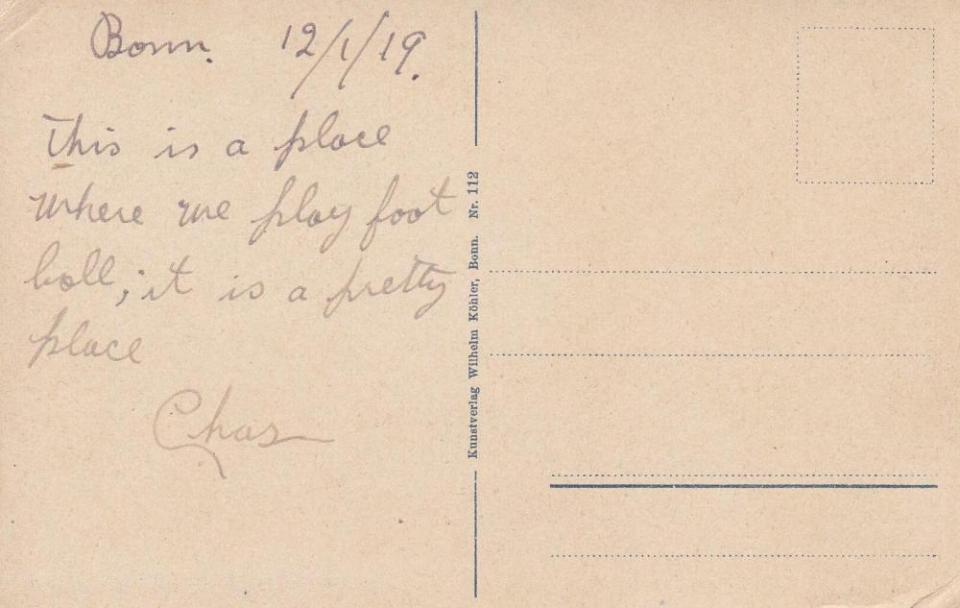 Bonn. 12/1/19.
This is a place
where we play foot
ball; it is a pretty
place
Chas
Kunstverlag Wilhelm Köhler, Bonn. Nr. 112